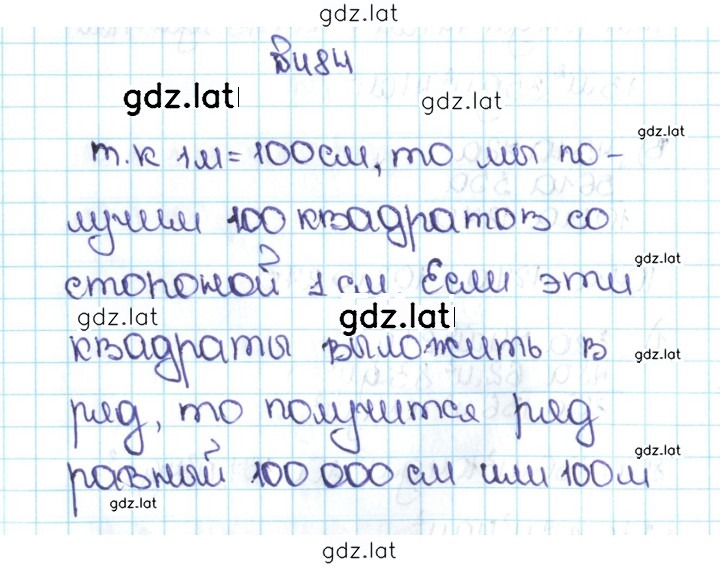 gdz.lat
В484
gdz.lat gdz.lat
gdz.lat
т.к 1м = 100см, то мы по-
лучим 100 квадратов со
gdz.lat
стороной 1см Если эти
gdz.lat gdz.lat
квадраты выложить в
gdz.lat
ряд, то получится ряд
gdz.lat
равный 100 000 см или 100м
gdz.lat
gdz.lat